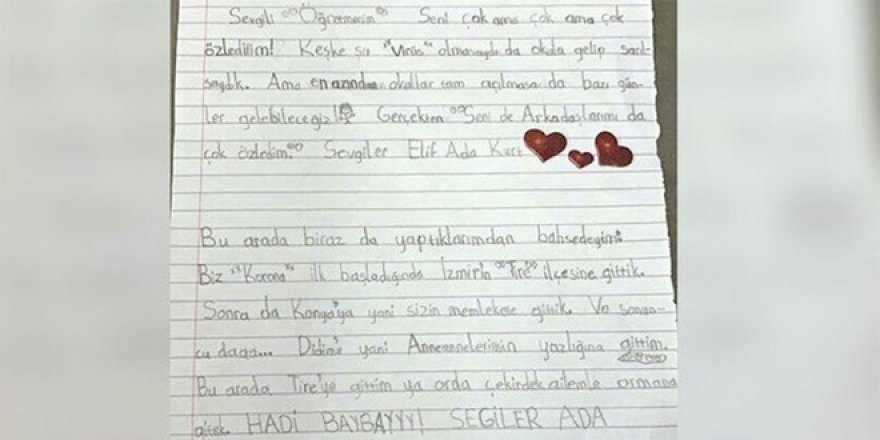 Sevgili "Öğretmenim" Seni çok ama çok ama çok
özledim! Keşke şu "Virüs" olmasaydı da okula gelip sarıl-
saydık. Ama en azından okullar tam açılmasa da bazı gün-
ler gelebileceğiz! Gerçekten Seni de Arkadaşlarımı da
çok özledim. Sevgiler Elif Ada Kurt
Bu arada biraz da yaptıklarımdan bahsedeyim:
Biz "Korona" ilk başladığında İzmir'in "Tire" ilçesine gittik.
Sonra da Konya'ya yani sizin memlekete gittik. Ve sonun-
cu daaaa... Didim'e yani Anneannelerimin yazlığına gittim.
Bu arada Tire'ye gittim ya orda çekirdek ailemle ormana
gittik. HADİ BAYBAYYY! SEGİLER ADA